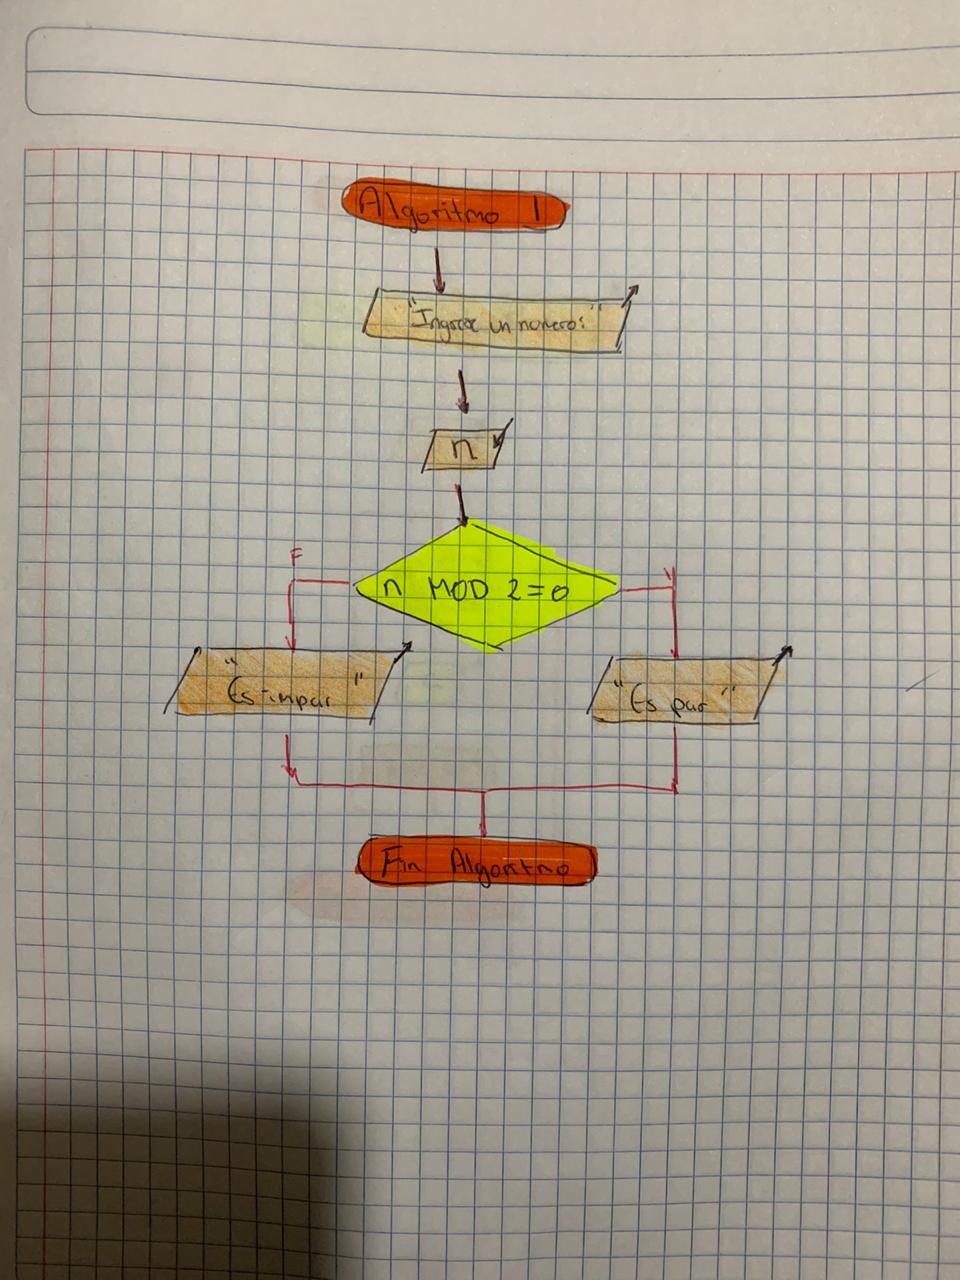 Algoritmo 1
"Ingrese un numero:"
n
n MOD 2=0
F
V
"Es impar"
"Es par"
Fin Algoritmo